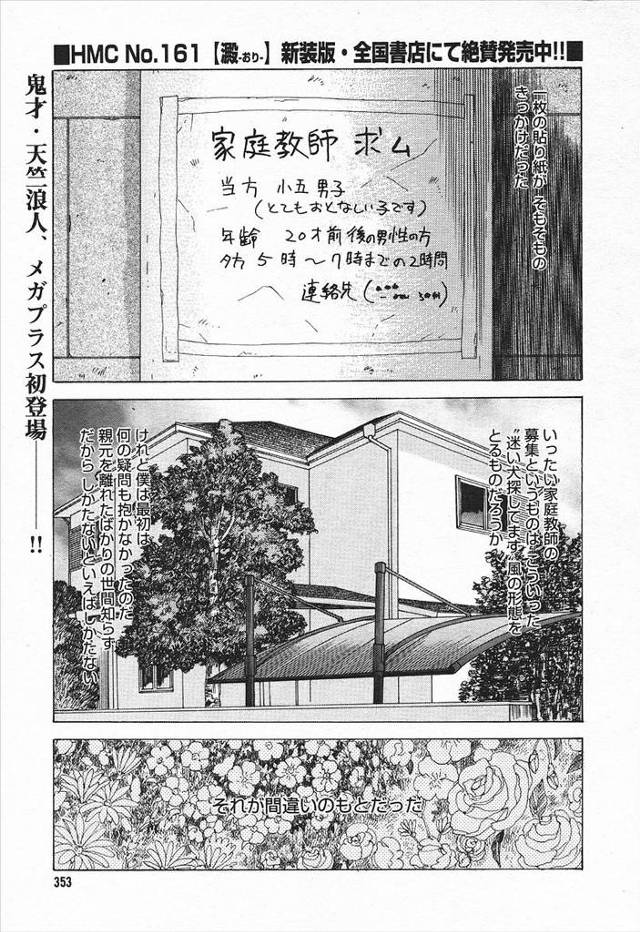 ■HMC No.161【澱-おり-】新装版・全国書店にて絶賛発売中!!■
鬼才・天竺浪人、メガプラス初登場――!!
一枚の貼り紙が そもそもの
きっかけだった
家庭教師 求ム
当方 小五 男子
(とてもおとなしい子です)
年齢 20才前後の男性の方
夕方 5時〜7時までの2時間
連絡先(
いったい家庭教師の
募集というものは こういった
“迷い犬探してます”風の形態を
とるものだろうか
けれど僕は最初は
何の疑問も抱かなかったのだ
親元を離れたばかりの世間知らず
だから しかたないといえばしかたない
それが間違いのもとだった
353